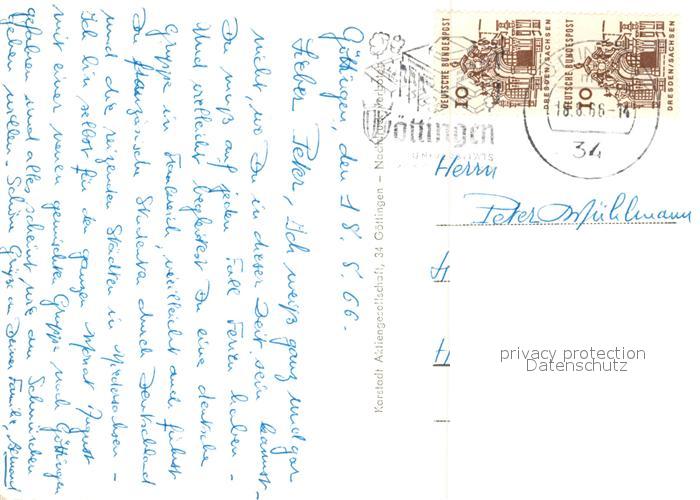 Göttingen, den 18.8.66.
Lieber Peter, Ich weiß ganz und gar
nicht, wo Du in dieser Zeit sein kannst.
Du muß auf jeden Fall Ferien haben.
Und vielleicht begleitest Du eine deutsche
Gruppe in Frankreich, vielleicht auch führst
Du französische Studenten durch Deutschland
und die reizenden Städten in Niedersachsen.
Ich bin selbst für den ganzen Monat August
mit einer neuen gemischten Gruppe nach Göttingen
gefahren und alles scheint, wie am Schnürchen
gehen wollen. Schöne Grüße an Deine Familie,
Karstadt Aktiengesellschaft, 34 Göttingen –
DEUTSCHE BUNDESPOST
10
DRESDEN/SACHSEN
DEUTSCHE BUNDESPOST
10
DRESDEN/SACHSEN
Göttingen
18.8.66-14
34
Herrn
Peter Mühlmann
H
H
privacy protection
Datenschutz